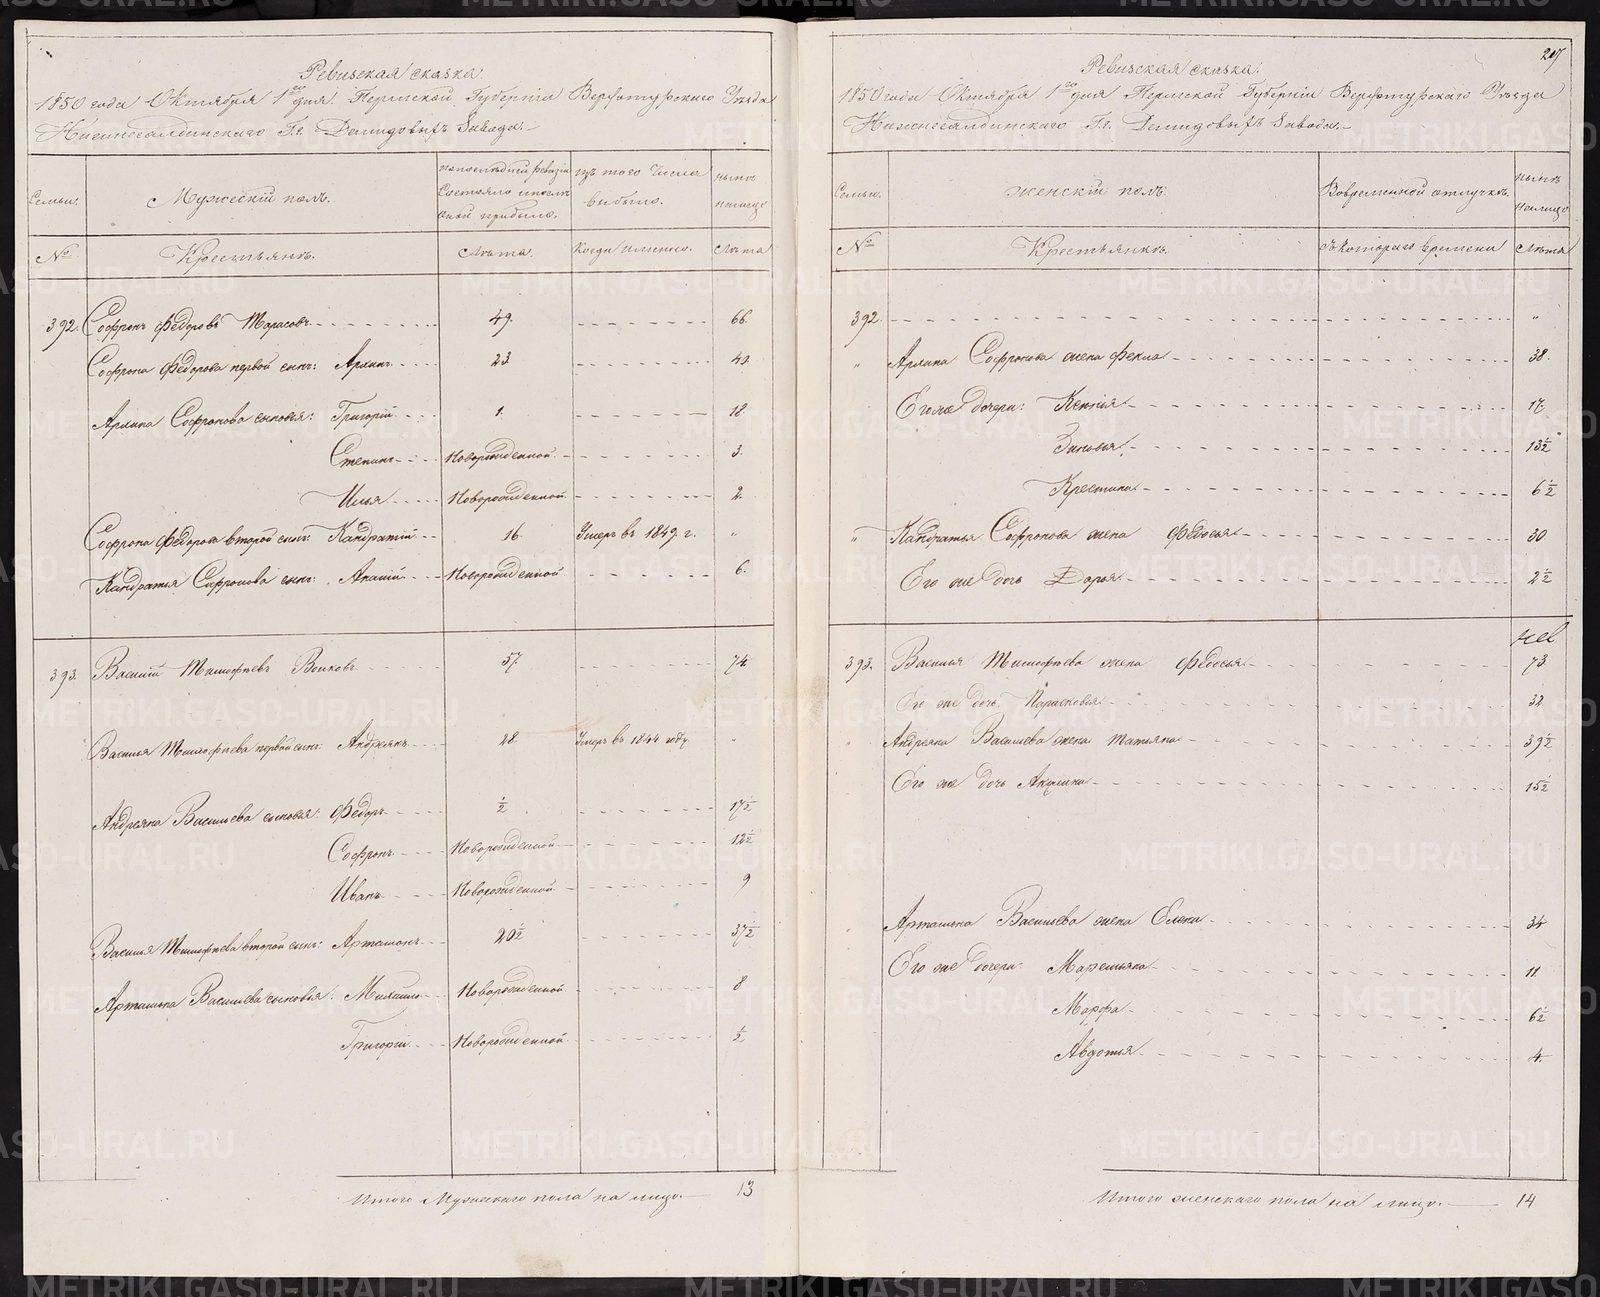 Ревизская сказка.
1850 года Октября 1го дня. Пермской Губернии Верхотурского Уезда
Нижнесалдинского Гг. Демидовыхъ Завода.
Семьи.
Мужескiй полъ.
Состояло и после
оной прибыло.
Изъ того числа
выбыло.
ныне
налицо
№
Крестьяне.
Лета.
Когда именно.
Лета
392. Софронъ Федоровъ Тарасовъ 49. 66.
Софрона Федорова первой сынъ: Архипъ 23. 40.
Архипа Софронова сыновья: Григорiй 1. 18
Степанъ Новорожденной 3.
Илья Новорожденной 2.
Софрона Федорова второй сынъ: Кандратiй 16. Умеръ въ 1849. г. "
Кандратья Софронова сынъ: Ананiй Новорожденной 6.
393. Василiй Тимофеевъ Волковъ 57. 74
Василья Тимофеева первой сынъ: Андреянъ 28. Умеръ въ 1844 году
Андреяна Васильева сыновья: Федоръ ½ 17½
Софронъ Новорожденной 12½
Иванъ Новорожденной 9
Василья Тимофеева второй сынъ: Артамонъ 20½ 37½
Артамона Васильева сыновья: Михайло Новорожденной 8
Григорiй Новорожденной ½
Итого Мужескаго пола на лицо. 13
207
Ревизская сказка.
1850 года Октября 1го дня Пермской Губернии Верхотурского Уезда
Нижнесалдинского Гг. Демидовыхъ Завода.
Семьи.
Женскiй полъ.
Во временной отлучке.
ныне
налицо
№
Крестьянке.
Съ котораго времени
Лета
392. "
" Архипа Софронова жена Фекла 38.
Его же дочери: Ксенiя 17
Зиновья 13½
Крестина 6½
" Кандратья Софронова жена Федосья 30
Его же дочь Дарья 2½
393. Василья Тимофеева жена Федосья 73
Его же дочь Парасковья 32
Андреяна Васильева жена Татьяна 39½
Его же дочь Акулина 15½
Артамона Васильева жена Елена 34
Его же дочери: Маремьяна 11
Марфа 6½
Авдотья 4.
Итого женскаго пола на лицо. 14